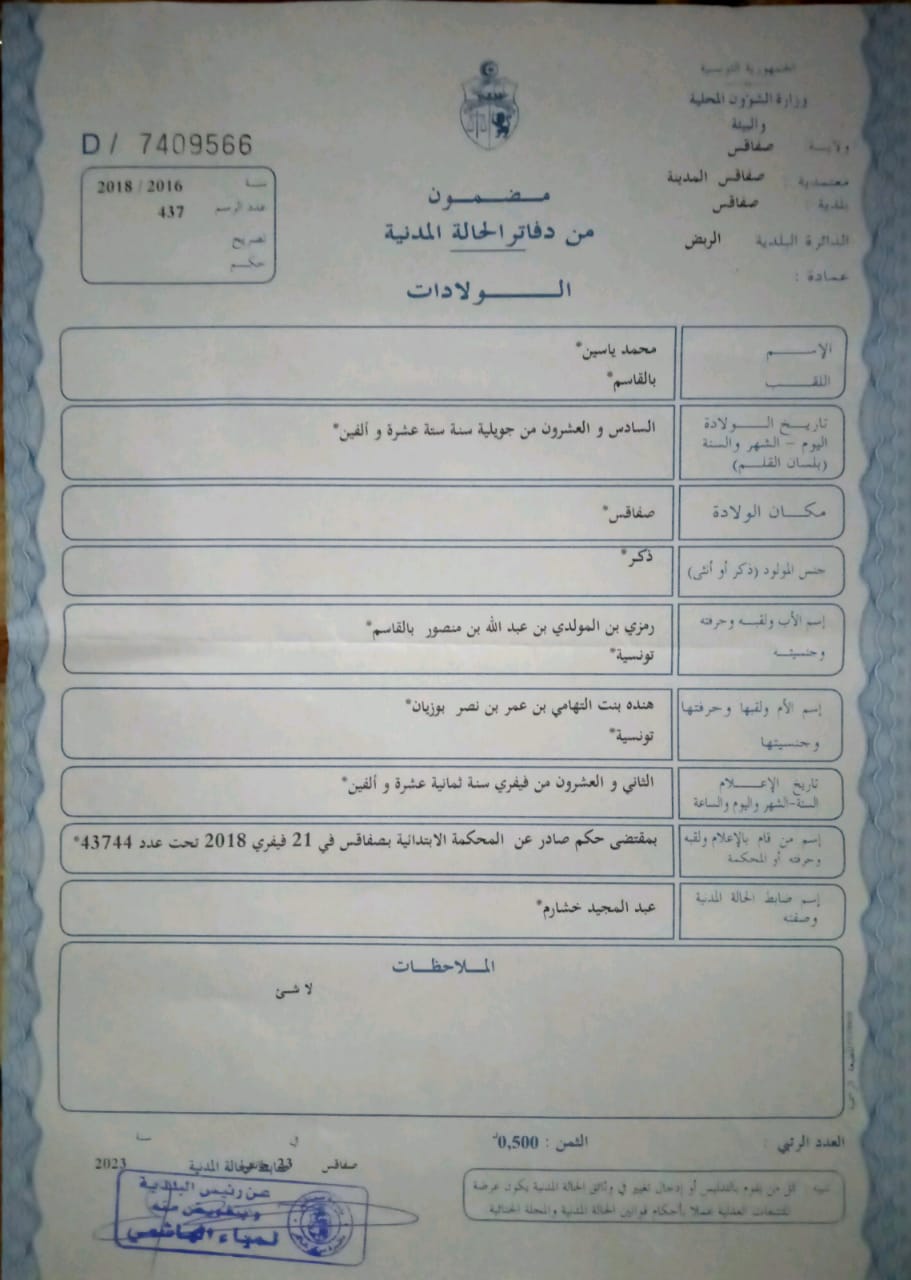 الجمهورية التونسية
وزارة الشؤون المحلية
والبيئة
ولاية : صفاقس
معتمدية : صفاقس المدينة
بلدية : صفاقس
الدائرة البلدية الربض
عمادة :
D / 7409566
سنة 2018 / 2016
عدد الرسم 437
تصريح
حكم
مضمون
من دفاتر الحالة المدنية
الولادات
الإسم محمد ياسين*
اللقب بالقاسم*
تاريخ الولادة
اليوم - الشهر والسنة
(بلسان القلم)
السادس و العشرون من جويلية سنة ستة عشرة و ألفين*
مكان الولادة صفاقس*
جنس المولود (ذكر أو أنثى) ذكر*
إسم الأب ولقبه وحرفته
وجنسيته
رمزي بن المولدي بن عبد الله بن منصور بالقاسم*
تونسية*
إسم الأم ولقبها وحرفتها
وجنسيتها
هنده بنت التهامي بن عمر بن نصر بوزيان*
تونسية*
تاريخ الإعلام
السنة-الشهر واليوم والساعة
الثاني و العشرون من فيفري سنة ثمانية عشرة و ألفين*
إسم من قام بالإعلام ولقبه
وحرفته أو المحكمة
بمقتضى حكم صادر عن المحكمة الابتدائية بصفاقس في 21 فيفري 2018 تحت عدد 43744*
إسم ضابط الحالة المدنية
وصفته
عبد المجيد خشارم*
الملاحظات
لا شئ
العدد الرتبي :
الثمن : 0,500د
تنبيه : كل من يقوم بالتدليس أو إدخال تغيير في وثائق الحالة المدنية يكون عرضة
للتتبعات العدلية عملا بأحكام قوانين الحالة المدنية والمجلة الجنائية
صفاقس في 23 سنة 2023
ضابط الحالة المدنية
عن رئيس البلدية
وبتفويض منه
لمياء الهاشمي